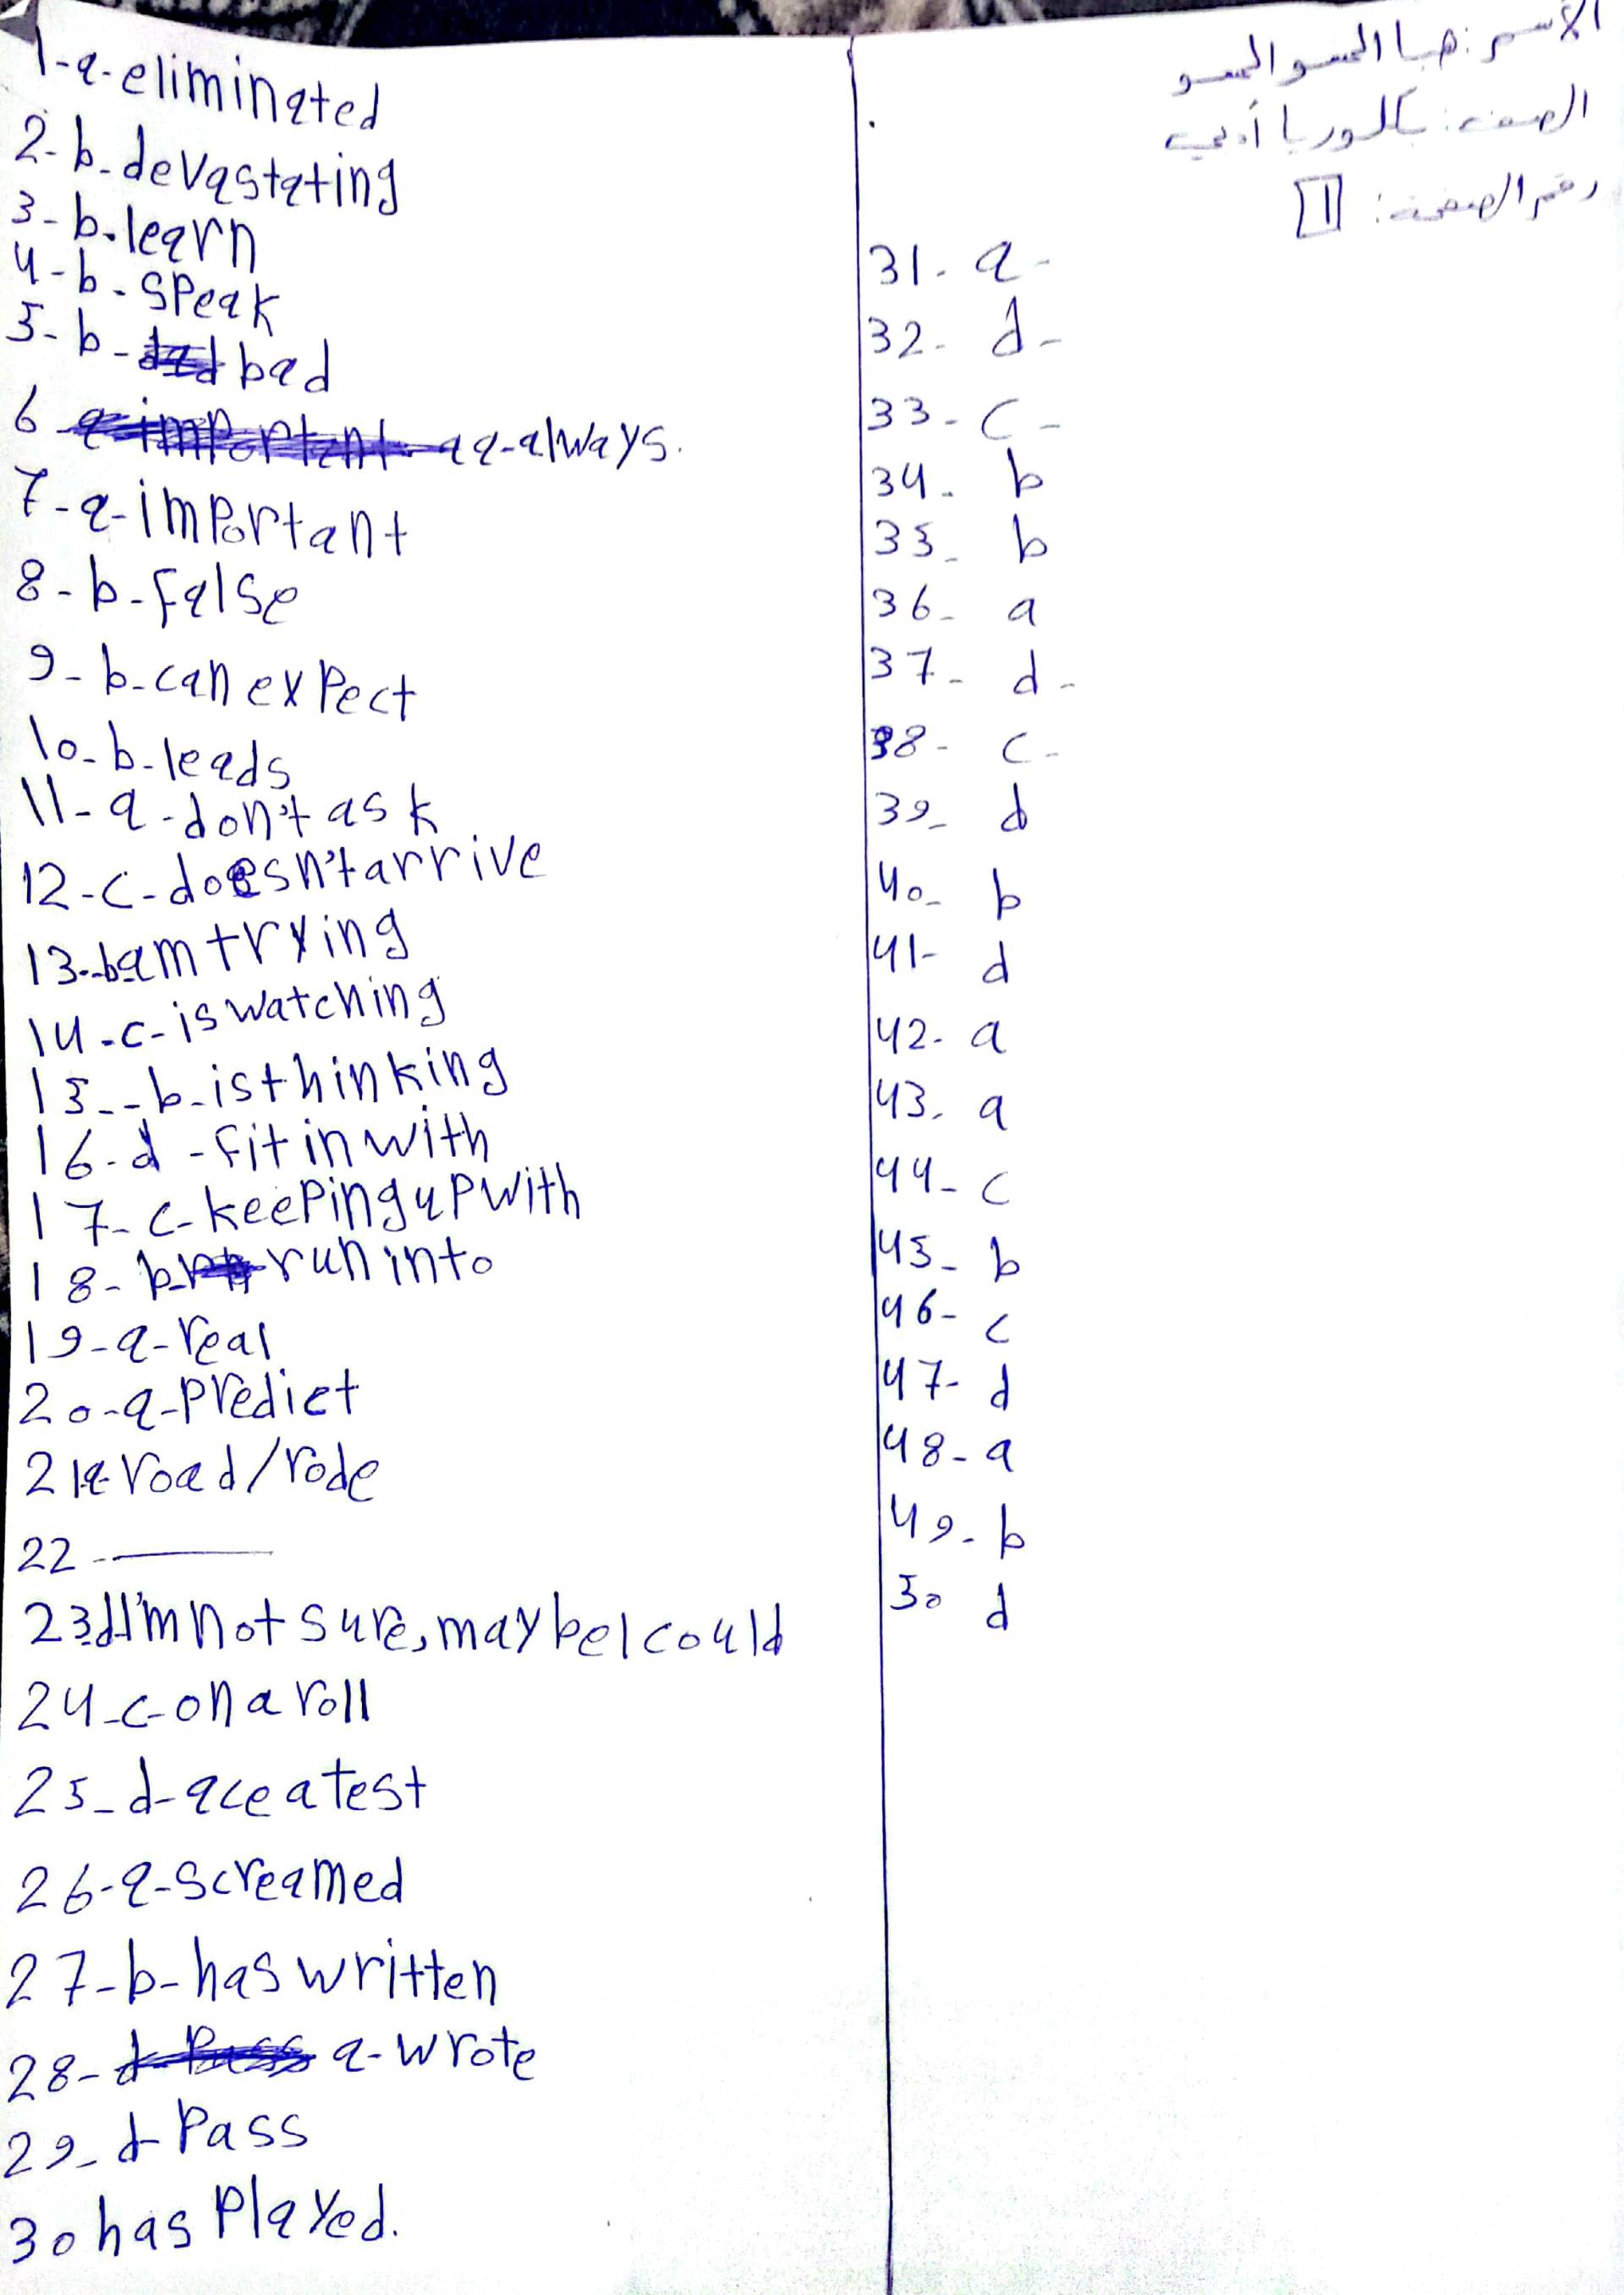 الاسم: هيا الحسو الحسو
الصف: بكلوريا أدبي
رقم الصفحة: 1
1-a-eliminated
2-b-devastating
3-b-learn
4-b-speak
5-b-bad
6-a-always.
7-a-important
8-b-false
9-b-can expect
10-b-leads
11-a-don't ask
12-c-doesn't arrive
13-b-am trying
14-c-is watching
15--b-is thinking
16-d-fit in with
17-c-keeping up with
18-b-run into
19-a-real
20-a-predict
21-a-road/rode
22-
23-d-I'm not sure, maybe I could
24-c-on a roll
25-d-ace a test
26-a-screamed
27-b-has written
28-a-wrote
29-d-Pass
30 has Played.
31-a-
32-d-
33-c-
34-b
35-b
36-a
37-d-
38-c-
39-d
40-b
41-d
42-a
43-a
44-c
45-b
46-c
47-d
48-a
49-b
50 d